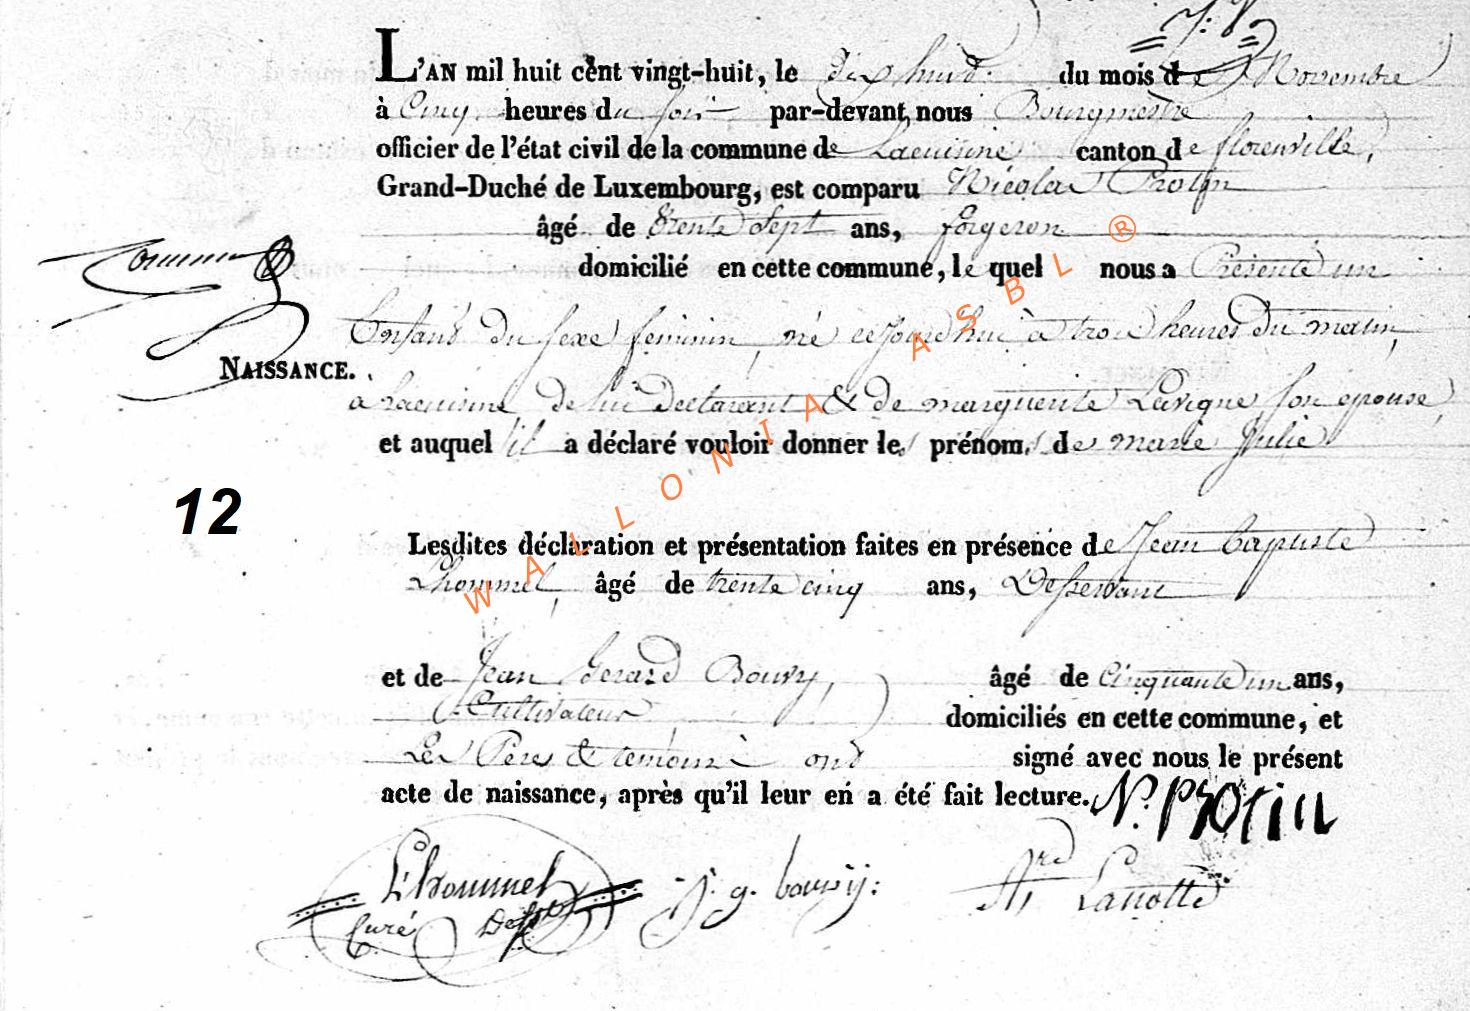 L'AN mil huit cent vingt-huit, le dix huit du mois de Novembre
à Cinq heures du soir par-devant nous Bourgmestre
officier de l'état civil de la commune de Lacuisine canton de florenville,
Grand-Duché de Luxembourg, est comparu Nicolas Protin
âgé de trente Sept ans, forgeron
domicilié en cette commune, le quel nous a Présenté un
Enfant du sexe feminin, né cejourdhui à trois heures du matin,
NAISSANCE.
a Lacuisine, de lui Declarant & de marguerite Lavigne son epouse,
et auquel il a déclaré vouloir donner les prénoms de marie Julie
12
Lesdites déclaration et présentation faites en présence de Jean Baptiste
Lhommel, âgé de trente cinq ans, Desservant
et de Jean Gerard Bouvy, âgé de Cinquante un ans,
Cultivateur domiciliés en cette commune, et
Les Pères & temoins ont signé avec nous le présent
acte de naissance, après qu'il leur en a été fait lecture. N. Protin
L'hommel j. g. bouvy: Lanotte
Curé Desst
WALLONIA ASBL ®